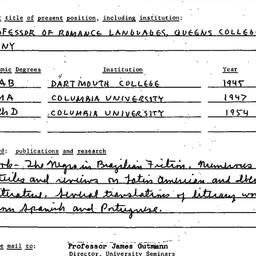 title of present position, including institution:
OFESSOR OF ROMANCE LANGUAGES, QUEENS COLLEG
NY
mic Degrees Institution Year
AB DARTMOUTH COLLEGE 1945
MA COLUMBIA UNIVERSITY 1947
Ph D COLUMBIA UNIVERSITY 1954
d: publications and research
The Negro in Brazilian Fiction. Numerous
ticles and reviews on Latin American and
terature. Several translations of literary wo
om Spanish and Portuguese.
e mail to: Professor James Gutmann
Director, University Seminars